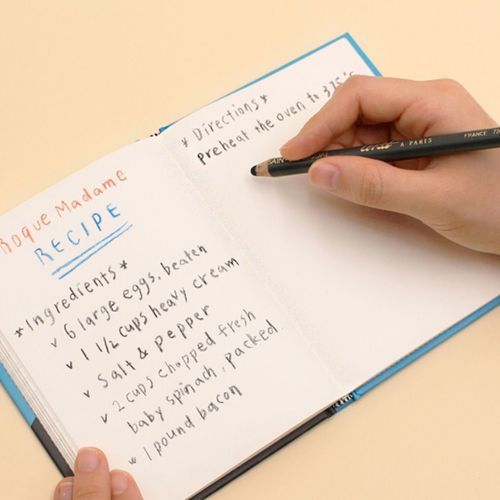 Roque Madame
RECIPE
*Ingredients*
✓ 6 large eggs, beaten
✓ 1 1/2 cups heavy cream
✓ Salt & Pepper
✓ 2 cups chopped fresh
baby spinach, packed
✓ 1 pound bacon
* Directions *
Preheat the oven to 375°
A PARIS
FRANCE